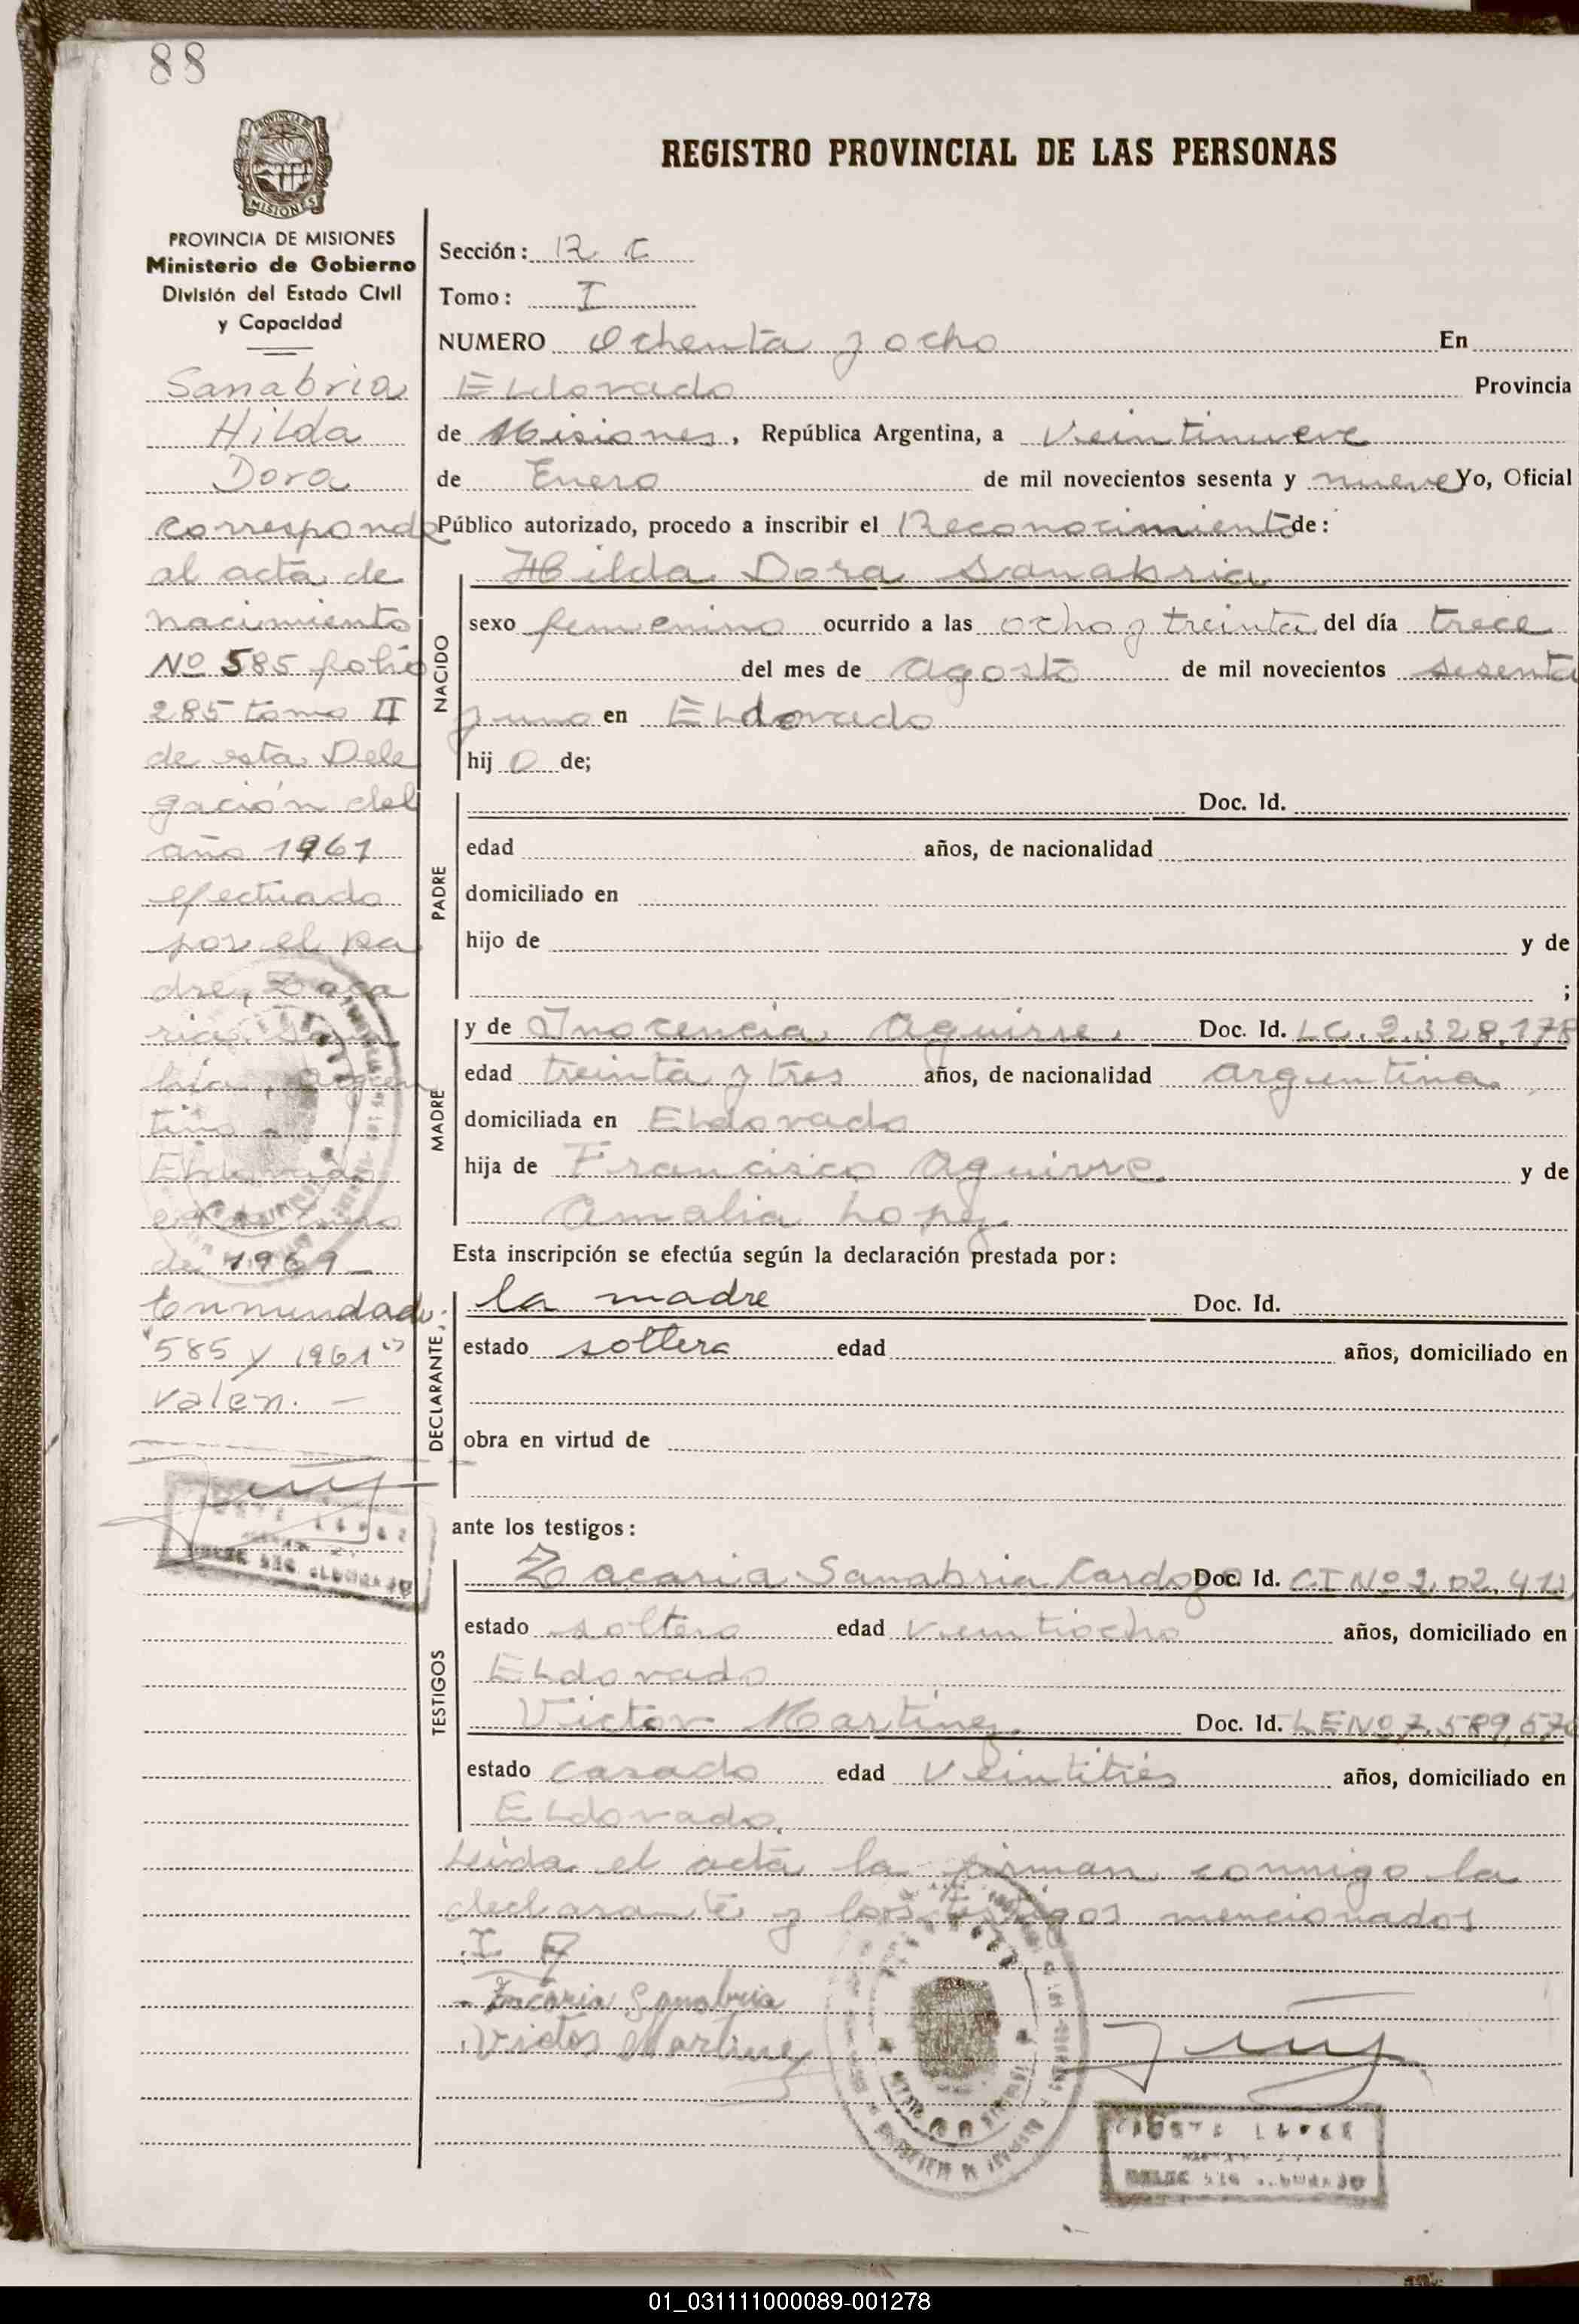 88
REGISTRO PROVINCIAL DE LAS PERSONAS
PROVINCIA DE
MISIONES
PROVINCIA DE MISIONES
Ministerio de Gobierno
División del Estado Civil
y Capacidad
Sanabria
Hilda
Dora
corresponde
al acta de
nacimiento
Nº 585 folio
285 tomo II
de esta Dele
gación del
año 1961
efectuado
por el pa
dre, Zaca
ria
tino
Eldorado
de 1969 –
Enmendado:
"585 y 1961"
valen. –
Sección: R C
Tomo: I
NUMERO Ochenta y ocho En
Eldorado Provincia
de Misiones, República Argentina, a Veintinueve
de Enero de mil novecientos sesenta y nueve Yo, Oficial
Público autorizado, procedo a inscribir el Reconocimiento de:
Hilda Dora Sanabria
NACIDO
sexo femenino ocurrido a las ocho y treinta del día trece
del mes de Agosto de mil novecientos sesenta
y uno en Eldorado
hij a de;
PADRE
Doc. Id.
edad años, de nacionalidad
domiciliado en
hijo de y de
;
MADRE
y de Inocencia Aguirre. Doc. Id. LC. 2.328.178
edad treinta y tres años, de nacionalidad argentina
domiciliada en Eldorado
hija de Francisco Aguirre y de
Amalia Lopez
Esta inscripción se efectúa según la declaración prestada por:
DECLARANTE
la madre Doc. Id.
estado soltera edad años, domiciliado en
obra en virtud de
ante los testigos:
TESTIGOS
Zacaria Sanabria Cardozo Doc. Id. CI Nº
estado soltero edad veintiocho años, domiciliado en
Eldorado
Victor Martinez Doc. Id. LE Nº 7.589.
estado casado edad Veintitrés años, domiciliado en
Eldorado.
Leida el acta la firman conmigo la
declarante y los testigos mencionados
I A
Zacaria Sanabria
Victor Martinez
01_031111000089-001278